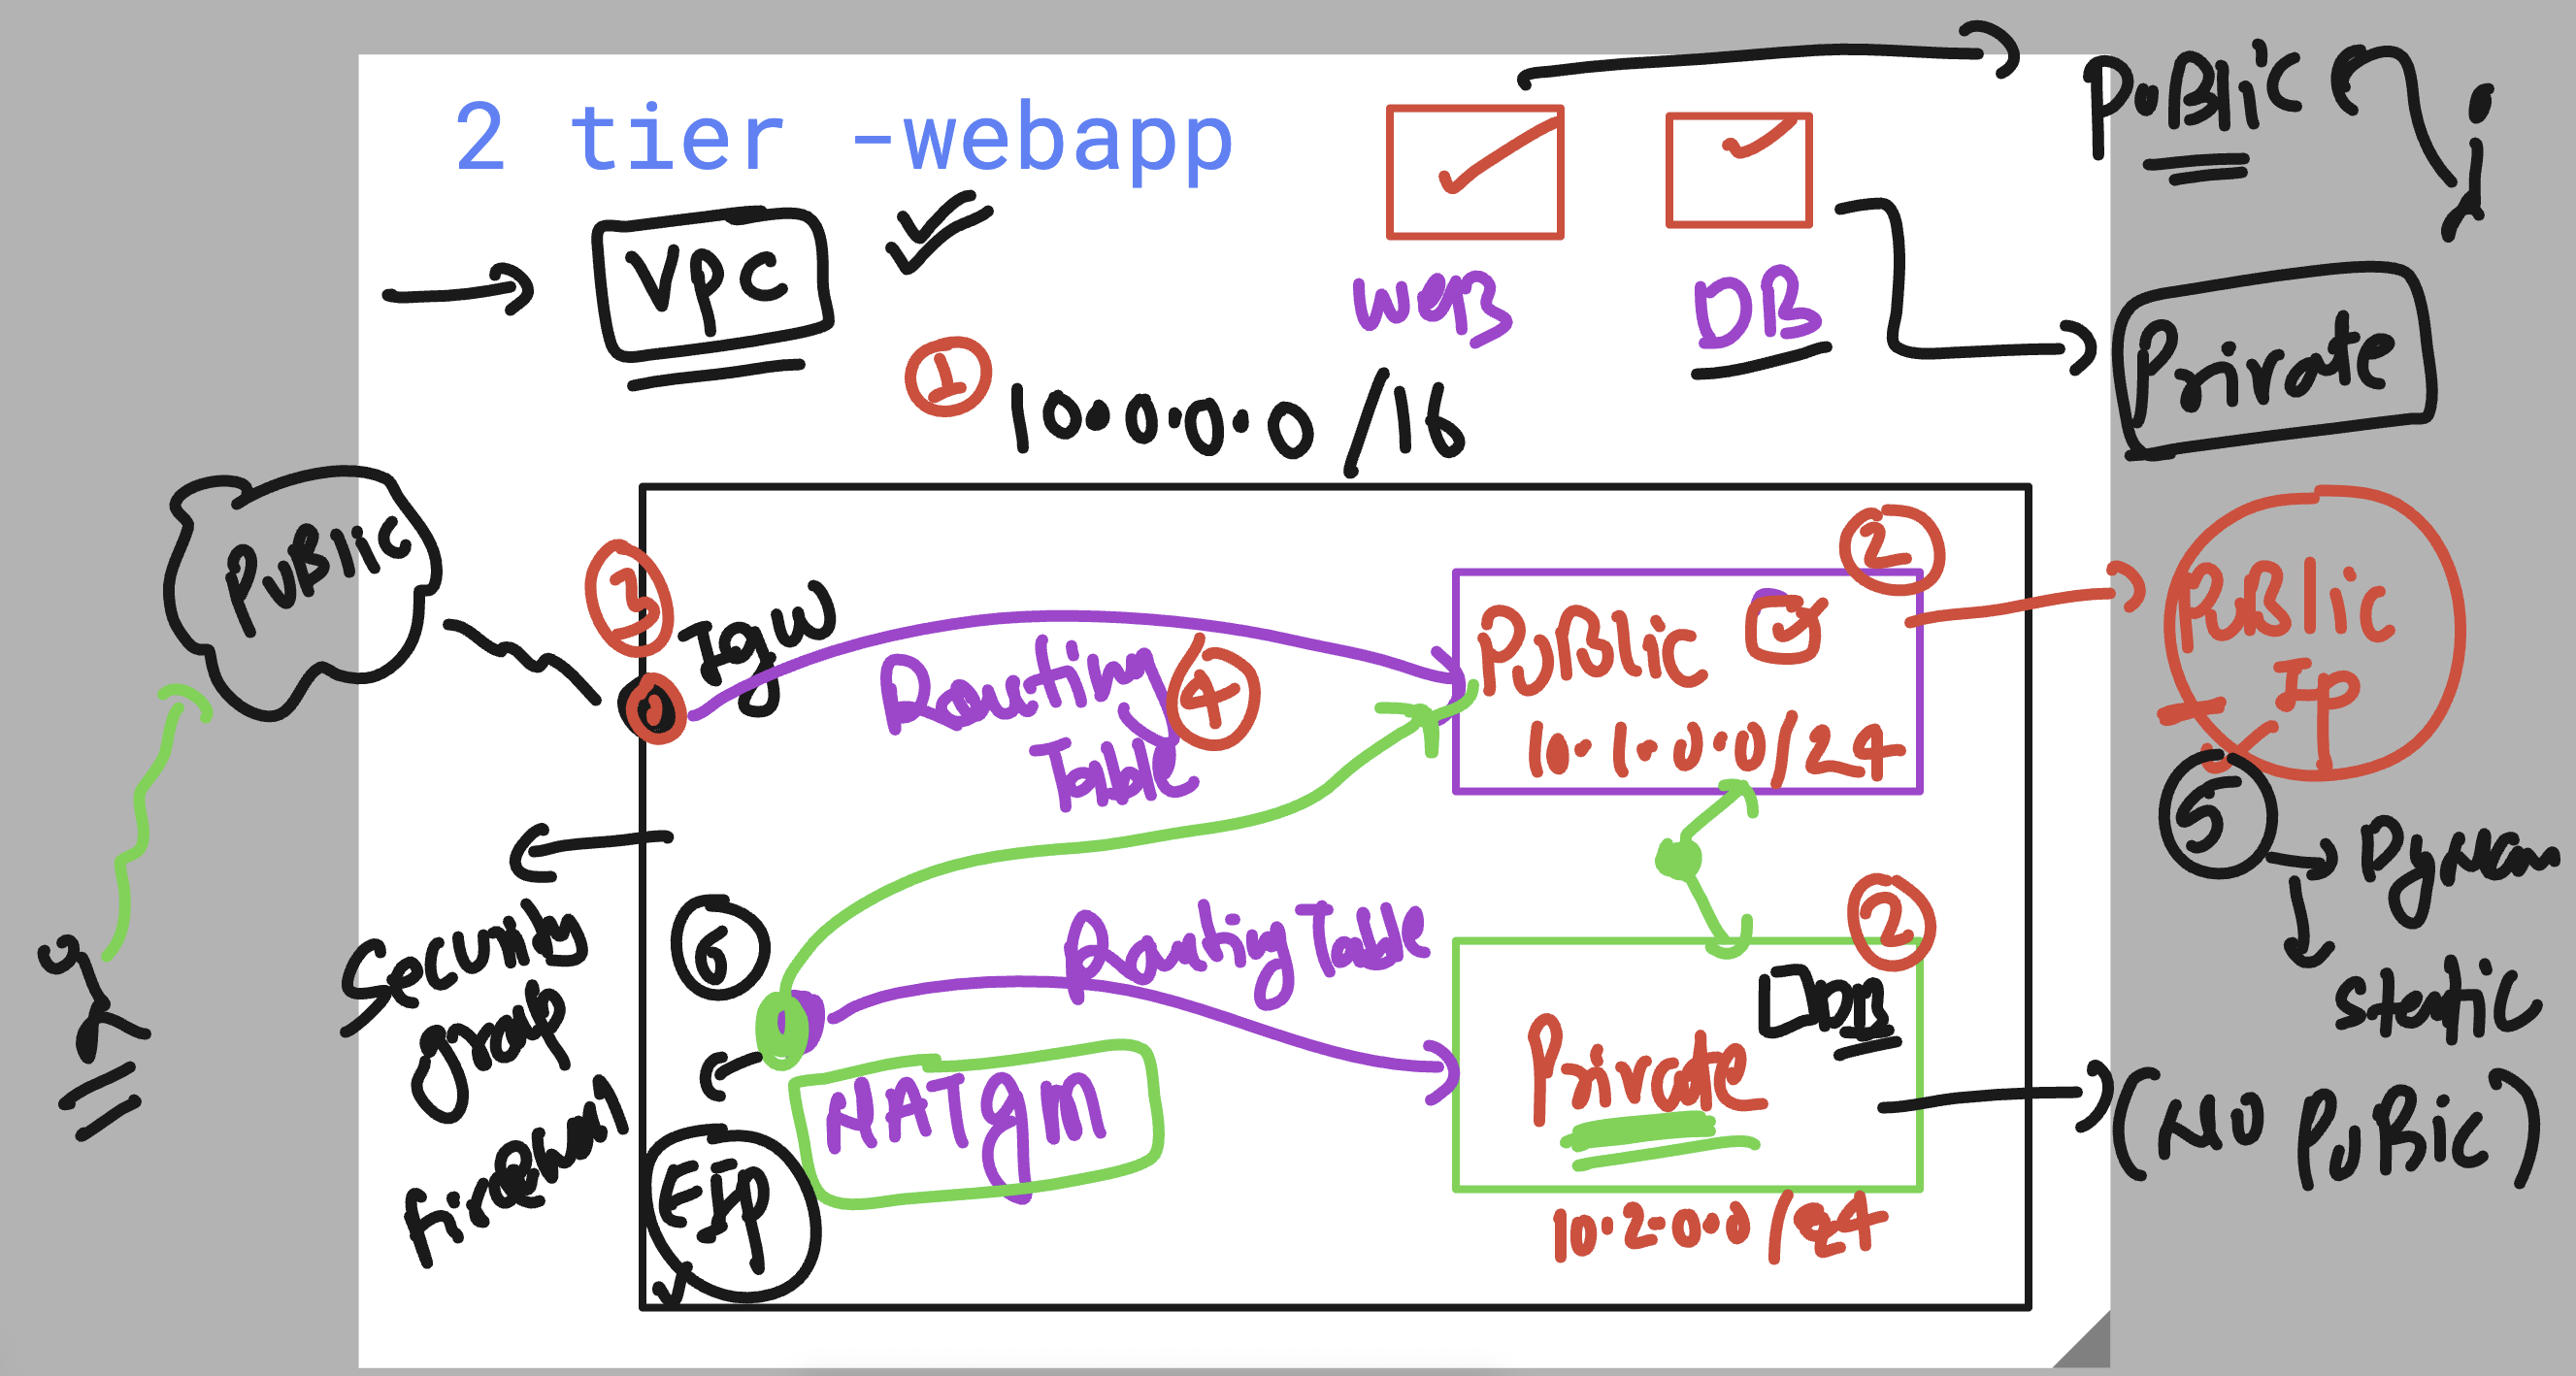 2 tier -webapp
PuBlic
VPC
WEB
DB
Private
1
10.0.0.0 /16
PuBlic
3
Igw
Routing
Table
4
2
PuBlic
10.1.0.0/24
PuBlic
Ip
5
Dynam
static
Security
group
firewall
6
Routing Table
NATgm
EIP
2
DB
Private
10.2.0.0/24
(NO PuBic)